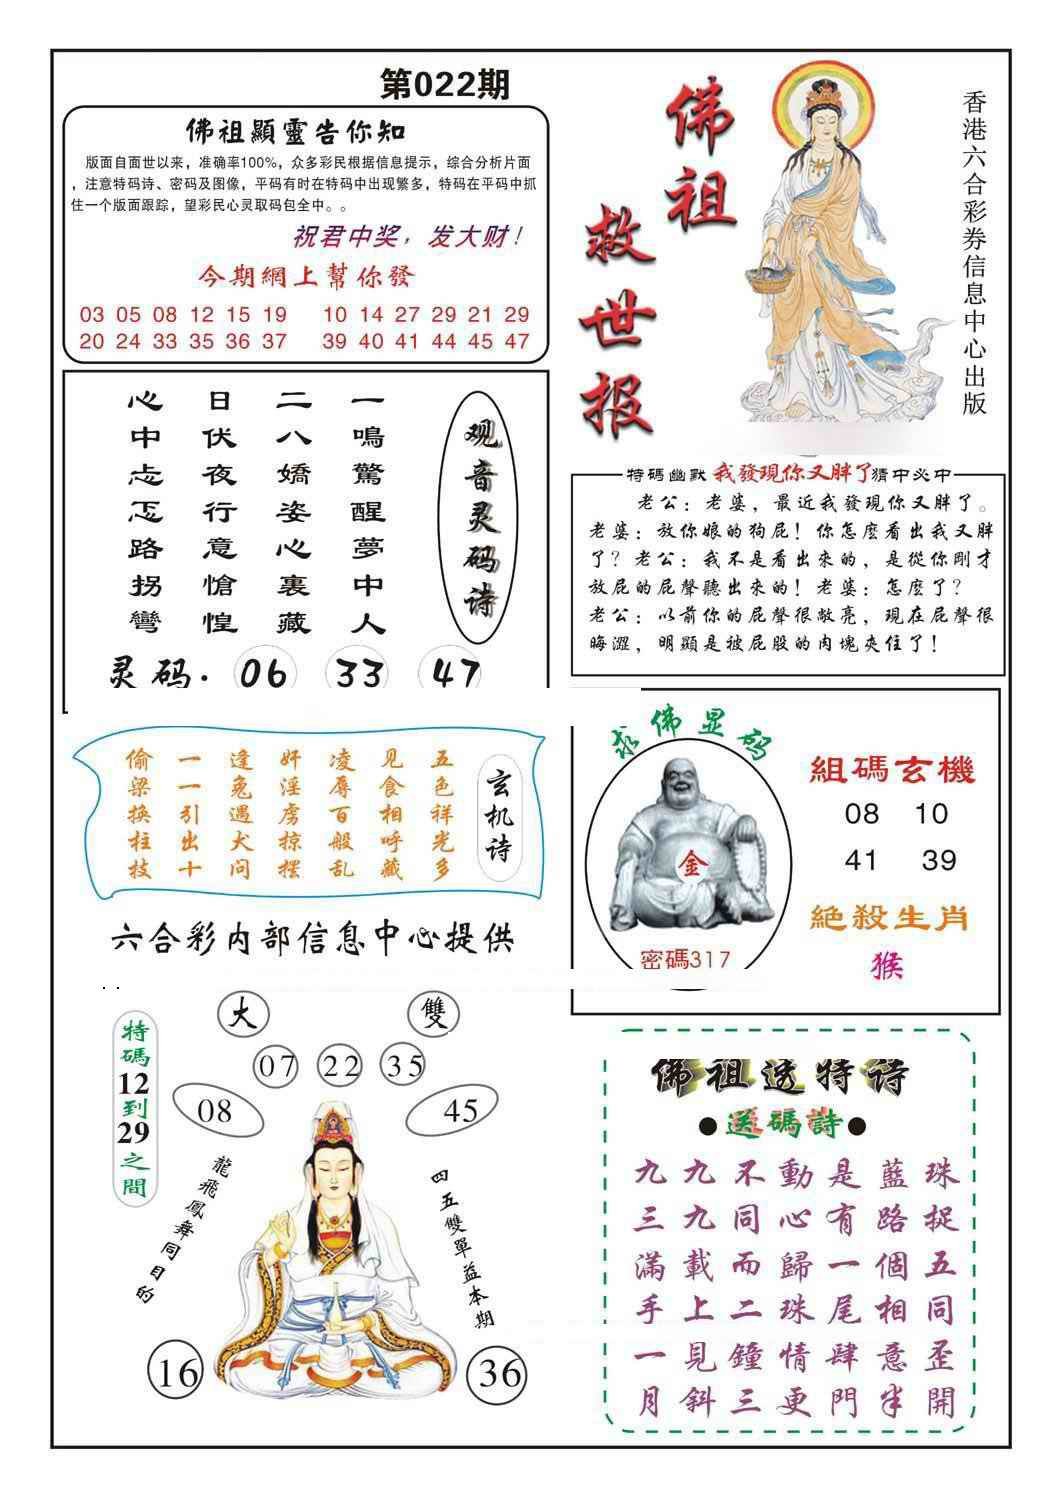 第022期
佛祖顯靈告你知
版面自面世以来，准确率100%，众多彩民根据信息提示，综合分析片面
，注意特码诗、密码及图像，平码有时在特码中出现繁多，特码在平码中抓
住一个版面跟踪，望彩民心灵取码包全中。。
祝君中奖，发大财！
今期網上幫你發
03 05 08 12 15 19 10 14 27 29 21 29
20 24 33 35 36 37 39 40 41 44 45 47
佛祖
救世报
香港六合彩券信息中心出版
观音灵码诗
一鳴驚醒夢中人
二八嬌姿心裏藏
日伏夜行意愴惶
心中忐忑路拐彎
灵码. 06 33 47
特碼幽默 我發現你又胖了 猜中必中
老公：老婆，最近我發現你又胖了。
老婆：放你娘的狗屁！你怎麽看出我又胖
了？老公：我不是看出來的，是從你剛才
放屁的屁聲聽出來的！老婆：怎麽了？
老公：以前你的屁聲很敞亮，現在屁聲很
晦澀，明顯是被屁股的肉塊夾住了！
玄机诗
五色祥光多
见食相呼藏
凌辱百般乱
奸淫虏掠摆
逢兔遇犬问
一一引出十
偷梁换柱技
六合彩内部信息中心提供
求佛显码
金
密碼317
組碼玄機
08 10
41 39
絕殺生肖
猴
大 雙
07 22 35
08 45
特碼12到29之間
龍飛鳳舞同目的
四五雙單益本期
16 36
佛祖透特诗
●送碼詩●
九九不動是藍珠
三九同心有路捉
滿載而歸一個五
手上二珠尾相同
一見鐘情肆意歪
月斜三更門半開